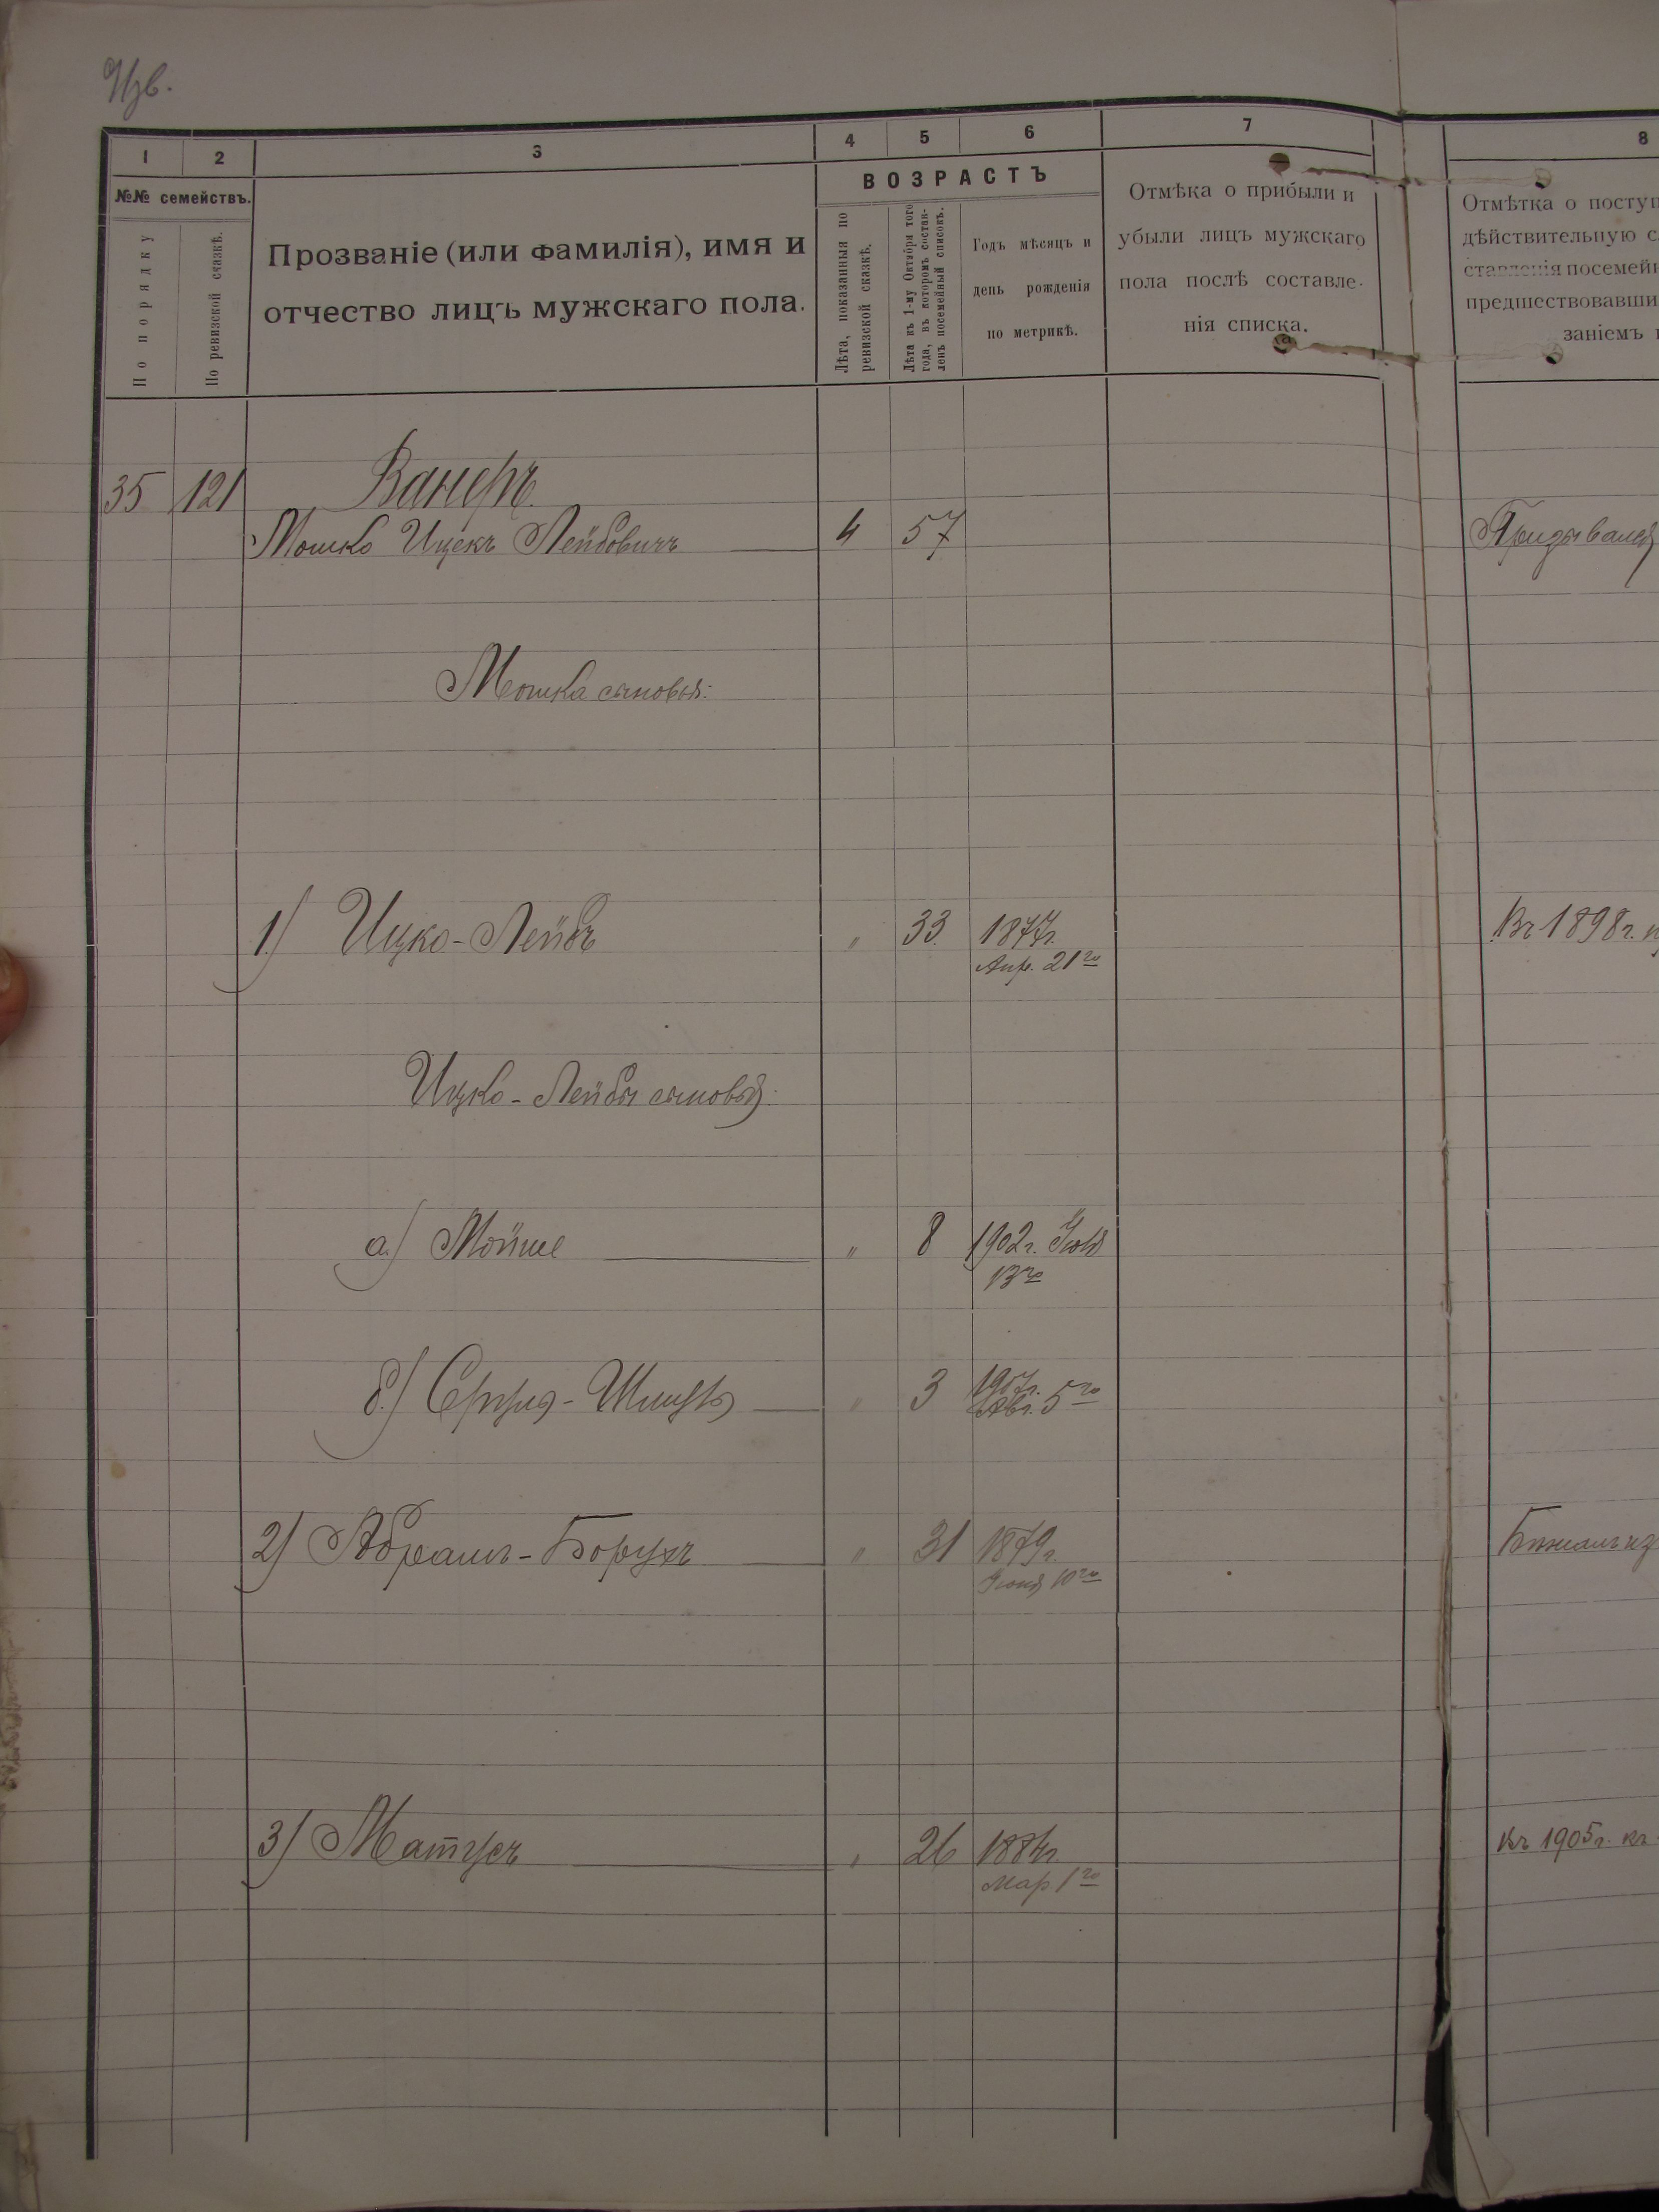 Изв.
1 2 3 4 5 6 7 8
№№ семействъ.
По порядку
По ревизской сказкѣ.
Прозваніе (или фамилія), имя и
отчество лицъ мужскаго пола.
ВОЗРАСТЪ
Лѣта, показанныя по
ревизской сказкѣ.
Лѣта къ 1-му Октября того
года, въ которомъ состав-
ленъ посемейный списокъ.
Годъ мѣсяцъ и
день рожденія
по метрикѣ.
Отмѣка о прибыли и
убыли лицъ мужскаго
пола послѣ составле-
нія списка.
Отмѣтка о поступ
дѣйствительную с
ставленія посемейн
предшествовавши
заніемъ
35 121 Ванеръ.
Мошко Ицекъ Лейбовичъ 4 57 Призывался
Мошка сыновья:
1) Ицко-Лейбъ " 33 1877г. Къ 1898г.
Апр. 21го
Ицко-Лейбы сыновья:
а) Мойше " 8 1902г. Іюля
13го
б) Сруля-Шмуль " 3 1907г.
Авг. 5го
2) Абрамъ-Борухъ " 31 1879г.
Іюня 10го
3) Матусъ " 26 1884г. Къ 1905г. къ
Мар 1го